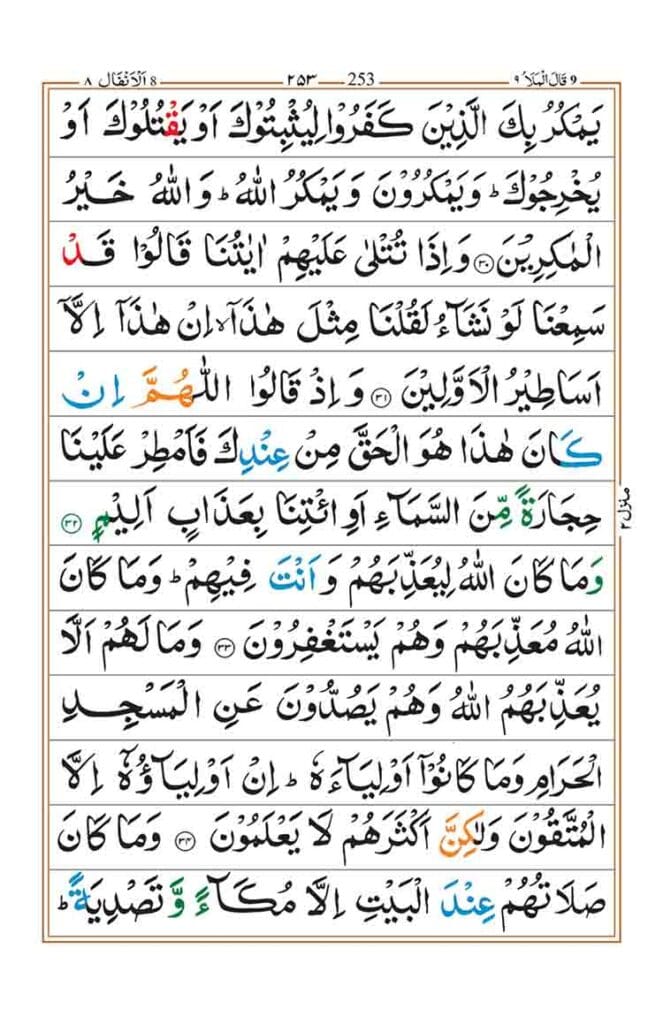 قَالَ الْمَلَأُ ٩ 9 253 ٢٥٣ اَلْاَنْفَال ٨ 8
يَمْكُرُ بِكَ الَّذِيْنَ كَفَرُوْا لِيُثْبِتُوْكَ اَوْ يَقْتُلُوْكَ اَوْ
يُخْرِجُوْكَ ؕ وَيَمْكُرُوْنَ وَيَمْكُرُ اللّٰهُ ؕ وَاللّٰهُ خَيْرُ
الْمٰكِرِيْنَ ۝٣٠ وَاِذَا تُتْلٰى عَلَيْهِمْ اٰيٰتُنَا قَالُوْا قَدْ
سَمِعْنَا لَوْ نَشَآءُ لَقُلْنَا مِثْلَ هٰذَاۤ ۙ اِنْ هٰذَاۤ اِلَّاۤ
اَسَاطِيْرُ الْاَوَّلِيْنَ ۝٣١ وَاِذْ قَالُوا اللّٰهُمَّ اِنْ
كَانَ هٰذَا هُوَ الْحَقَّ مِنْ عِنْدِكَ فَاَمْطِرْ عَلَيْنَا
حِجَارَةً مِّنَ السَّمَآءِ اَوِ ائْتِنَا بِعَذَابٍ اَلِيْمٍ ۝٣٢
وَمَا كَانَ اللّٰهُ لِيُعَذِّبَهُمْ وَاَنْتَ فِيْهِمْ ؕ وَمَا كَانَ
اللّٰهُ مُعَذِّبَهُمْ وَهُمْ يَسْتَغْفِرُوْنَ ۝٣٣ وَمَا لَهُمْ اَلَّا
يُعَذِّبَهُمُ اللّٰهُ وَهُمْ يَصُدُّوْنَ عَنِ الْمَسْجِدِ
الْحَرَامِ وَمَا كَانُوْۤا اَوْلِيَآءَهٗ ؕ اِنْ اَوْلِيَآؤُهٗۤ اِلَّا
الْمُتَّقُوْنَ وَلٰكِنَّ اَكْثَرَهُمْ لَا يَعْلَمُوْنَ ۝٣٤ وَمَا كَانَ
صَلَاتُهُمْ عِنْدَ الْبَيْتِ اِلَّا مُكَآءً وَّتَصْدِيَةً ؕ
منزل ٢